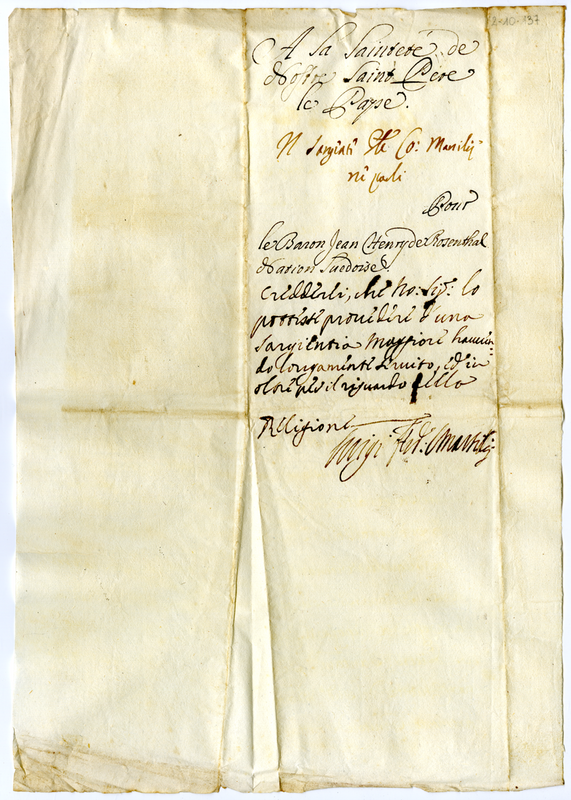 2-10-137
A Sa Sainteté de
Nostre Saint Père
le Pape.
Al Sargiente Co: Marsilij
ne parli
Pour
le Baron Jean Henry de Rosenthal
Nation Suedoise.
Crederei, che No: Sig: lo
potesse provedere d'una
Sargientia Maggiore havien-
do longamente servito, ed in
oltre per il riguardo della
Religione
Luigi Fer: Marsilij